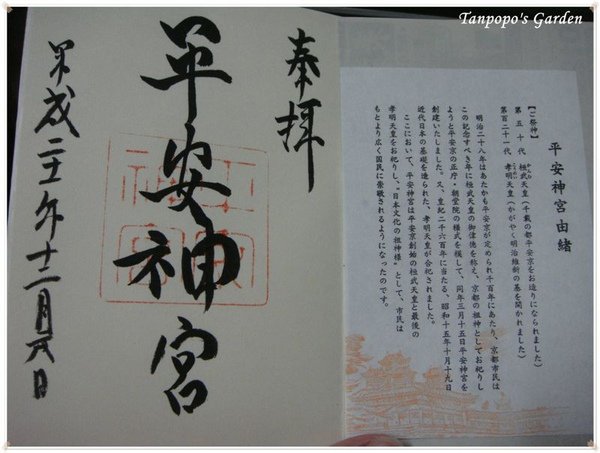 Tanpopo's Garden
奉拝
平安神宮
平成二十一年十二月六日
平安神宮由緒
【ご祭神】
第五十代 桓武天皇（千載の都平安京をお造りになられました）
第百二十一代 孝明天皇（かがやく明治維新の基を開かれました）
明治二十八年はあたかも平安京が定められ千百年にあたり、京都市民は
この記念すべき年に桓武天皇の御偉徳を称え、京都の祖神としてお祀りし
ようと平安京の正庁・朝堂院の様式を模して、同年三月十五日平安神宮を
創建いたしました。又、皇紀二千六百年に当たる、昭和十五年十月十九日
近代日本の基礎を造られた、孝明天皇が合祀されました。
ここにおいて、平安神宮は平安京創始の桓武天皇と最後の
孝明天皇をお祀りし、“日本文化の祖神様”として、市民は
もとより広く国民に崇敬されるようになったのです。